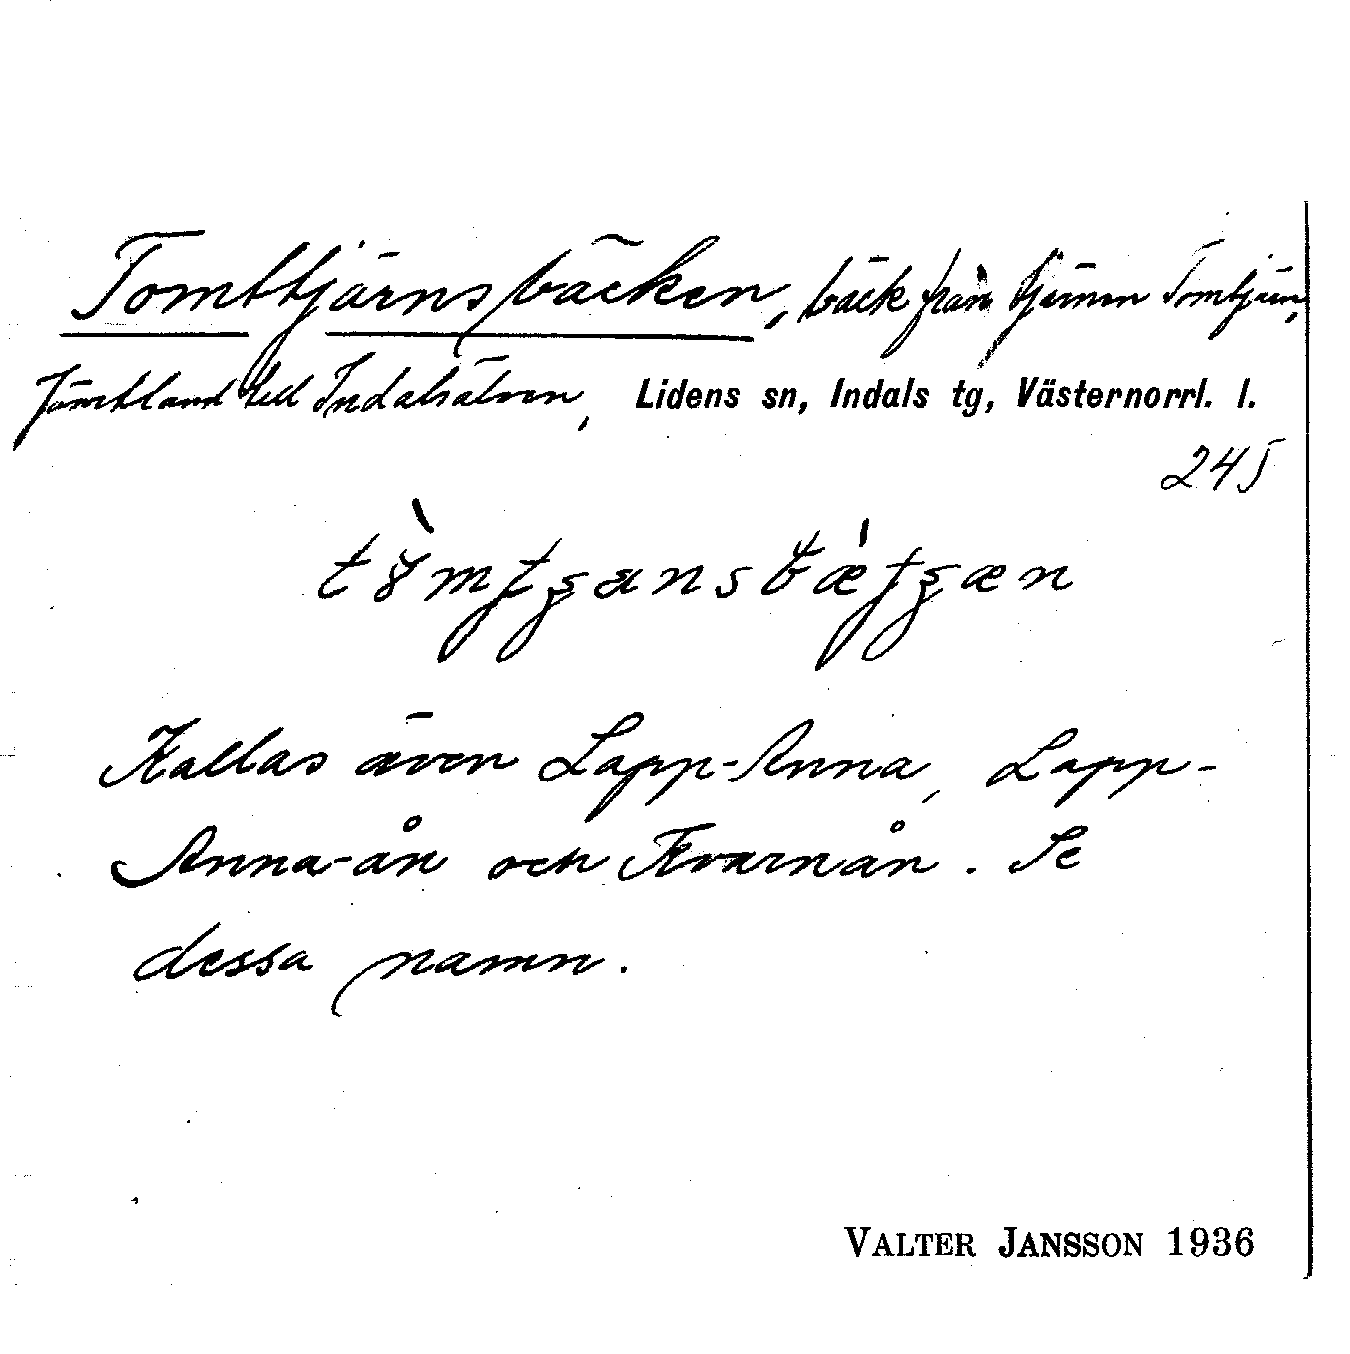 Tomttjärnsbäcken, bäck från tjärnen Tomtjärn,
Jämtland till Indalsälven, Lidens sn, Indals tg, Västernorrl. l.
245
Kallas även Lapp-Anna, Lapp-
Anna-ån och Kvarnån. Se
dessa namn.
VALTER JANSSON 1936